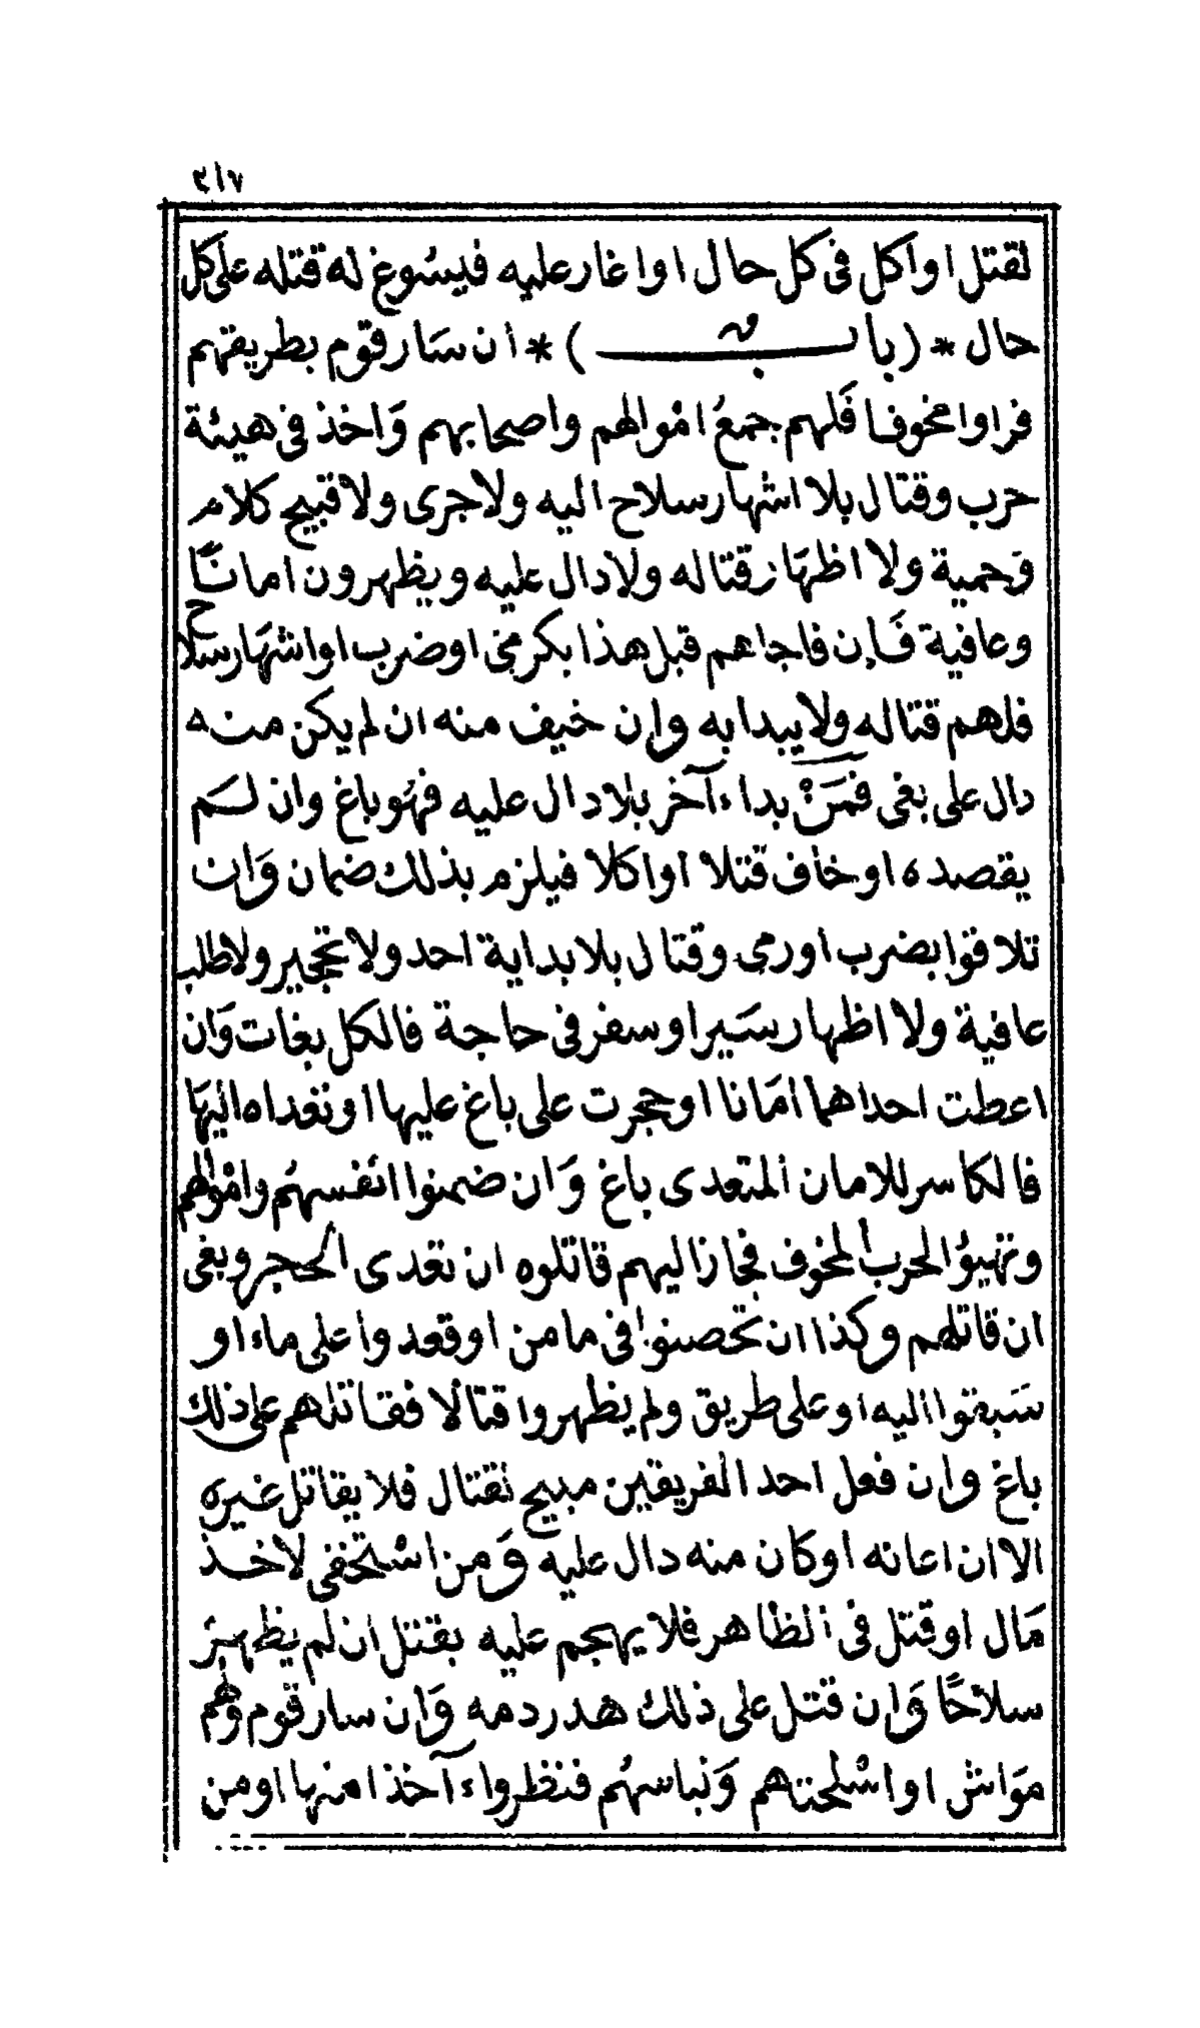 ٣١٧
لقتل او اكل فى كل حال او اغار عليه فيسوغ له قتله على كل
حال * (باب) * ان سار قوم بطريقهم
فراوا مخوفا فلهم جمع اموالهم واصحابهم وَاخذ فى هيئة
حرب وقتال بلا اشهار سلاح اليه ولا جرى ولا قبيح كلام
وحمية ولا اظهار قتاله ولا دال عليه ويظهرون امانًا
وعافية فَإن فاجاهم قبل هذا بكرمى او ضرب او اشهار سلاح
فلهم قتاله ولا يبدا به وإن خيف منه ان لم يكن منه
دال على بغى فمَنْ بداء آخر بلا دال عليه فهو باغ وان لم
يقصده او خاف قتلا او اكلا فيلزم بذلك ضمان وَان
تلاقوا بضرب او رمى وقتال بلا بداية احد ولا تحجير ولا طلب
عافية ولا اظهار سَير او سفر فى حاجة فالكل بغات وَان
اعطت احداهما أمَانا او حجرت على باغ عليها او تعداه اليها
فالكاسر للامان المتعدى باغ وَان ضمنوا انفسهُم وامْوالهم
وتهيؤا لحرب المخوف فجاز اليهم قاتلوه ان تعدى الحجر وبغى
ان قاتلهم وكذا ان تحصنوا فى مامن او قعدوا على ماء او
سَبقوا اليه او على طريق ولم يظهروا قتالا فقاتلهم على ذلك
باغ وان فعل احد الفريقين مبيح لقتال فلا يقاتل غيره
الا ان اعانه او كان منه دال عليه وَمن اسْتخفى لاخذ
مَال او قتل فى الظاهر فلا يهجم عليه بقتل ان لم يظهر
سلاحًا وَان قتل على ذلك هدر دمه وَان سار قوم وَلهم
موَاش او اسْلحتهم وَنباسهُم فنظروا آخذا منها او من